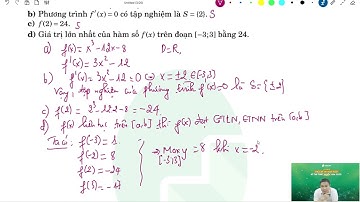 b) Phương trình f'(x) = 0 có tập nghiệm là S = {2}. S
c) f(2) = 24. S
d) Giá trị lớn nhất của hàm số f(x) trên đoạn [-3;3] bằng 24.
a) f(x) = x³ - 12x - 8 D = R.
f'(x) = 3x² - 12
b) f'(x) = 3x² - 12 = 0 ⇔ x = ±2 ∈ [-3,3]
Vậy, tập nghiệm của phương trình f'(x) = 0 là S = {±2}
c) f(2) = 2³ - 12.2 - 8 = -24
d) f(x) liên tục trên [a,b] thì f(x) đạt GTLN, GTNN trên [a,b]
Ta có: f(-3) = 1.
f(-2) = 8
f(2) = -24
f(3) = -17
⇒ Max y = 8 khi x = -2.
[-3,3]